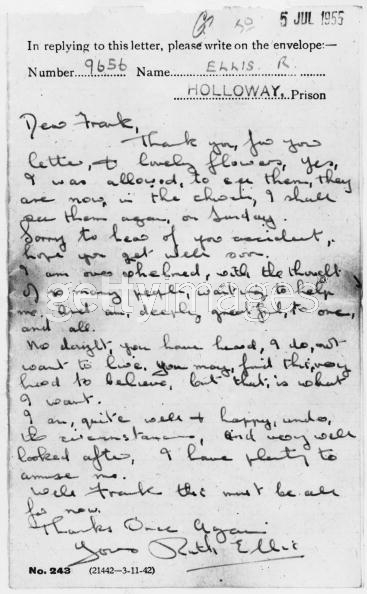 G 50 5 JUL 1955
In replying to this letter, please write on the envelope:—
Number 9656 Name ELLIS. R.
HOLLOWAY, Prison
Dear Frank,
Thank you, for your
letter, + lovely flowers, yes,
I was allowed, to see them, they
are now, in the church, I shall
see them again, on Sunday.
Sorry to hear of you accident,
hope you get well soon.
I am overwhelmed, with the thought
of so many people, wanting to help
me. But am deeply grateful, to one,
and all.
No dought, you have head, I do, not
want to live. You may, find this, very
hard to believe, but that, is what
I want.
I am, quite well + happy, under,
the circumstances, and very well
looked after, I have plenty to
amuse me.
Well Frank this must be all
for now.
Thanks Once Again
Yours Ruth Ellis
No. 243 (21442—3-11-42)
gettyimages